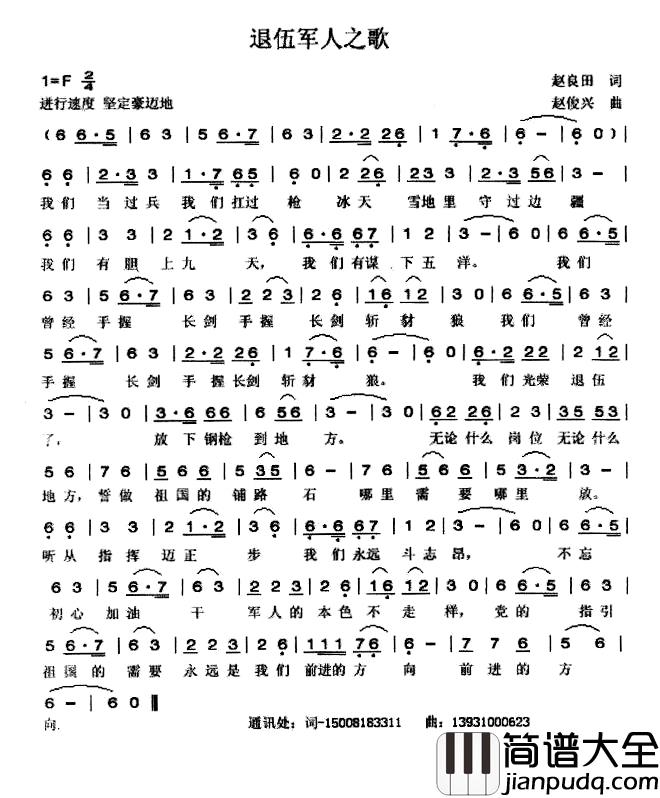 退伍军人之歌
1=F 2/4
赵良田 词
进行速度 坚定豪迈地
赵俊兴 曲
(6 6·5 | 6 3 | 5 6·7 | 6 3 | 2·2 26 | 1 7·6 | 6 - | 6 0) |
6 6 | 2·3 3 | 1·7 65 | 6 0 | 2 26 | 23 3 | 2·3 35 | 3 - |
我们 当过兵 我们扛过 枪 冰天 雪地里 守过边 疆
6 6 | 3 3 | 2 1·2 | 3 6 | 6·6 67 | 1 2 | 3 - | 6 0 | 6 6·5 |
我们 有胆 上九 天, 我们有谋 下五 洋。 我们
6 3 | 5 6·7 | 6 3 | 2 2 3 | 2 6 | 16 12 | 3 0 | 6 6·5 | 6 3 |
曾经 手握 长剑 手握 长剑 斩豺 狼 我们 曾经
5 6·7 | 6 3 | 2·2 26 | 1 7·6 | 6 - | 6 0 | 6·2 22 | 2 12 |
手握 长剑 手握长剑 斩豺 狼。 我们光荣 退伍
3 - | 3 0 | 3·6 66 | 6 56 | 3 - | 3 0 | 62 26 | 2 3 | 35 53 |
了, 放下钢枪 到地 方。 无论什么 岗位 无论什么
5 6 | 7 6 | 5 6 6 | 5 35 | 6 - | 7 6 | 5 6 6 | 5 3·2 | 3 - |
地方, 誓做 祖国的 铺路 石 哪里 需要 哪里 放。
6 6 | 3 3 | 2 1·2 | 3 6 | 6·6 67 | 1 2 | 3 - | 6 0 | 6 6·5 |
听从 指挥 迈正 步 我们永远 斗志 昂, 不忘
6 3 | 5 6·7 | 6 3 | 2 2 3 | 2 6 | 16 12 | 3 0 | 6 6·5 | 6 3 |
初心 加油 干 军人的 本色 不走 样, 党的 指引
5 6·7 | 6 3 | 2 2 3 | 2 6 | 111 76 | 6 - | 7 7 6 | 5 6 |
祖国 的 需要 永远是 我们 前进的方 向 前进的 方
6 - | 6 0 ‖
向.
通讯处: 词-15008183311 曲: 13931000623
简谱大全
jianpudq.com